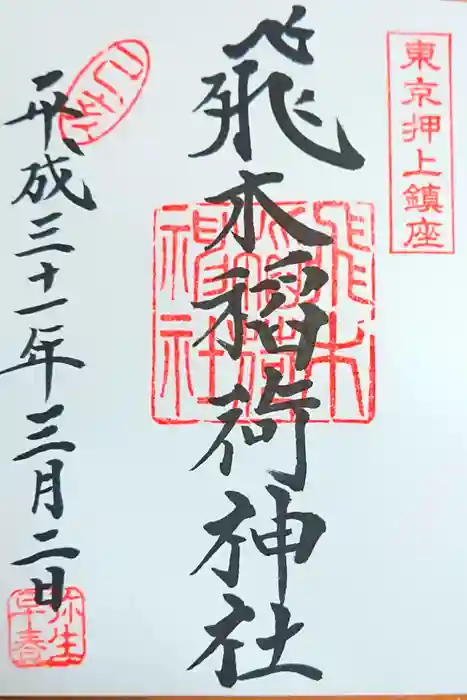 東京押上鎮座
飛木稲荷神社
飛木稲荷神社
平成三十一年三月二日
弥生
早春